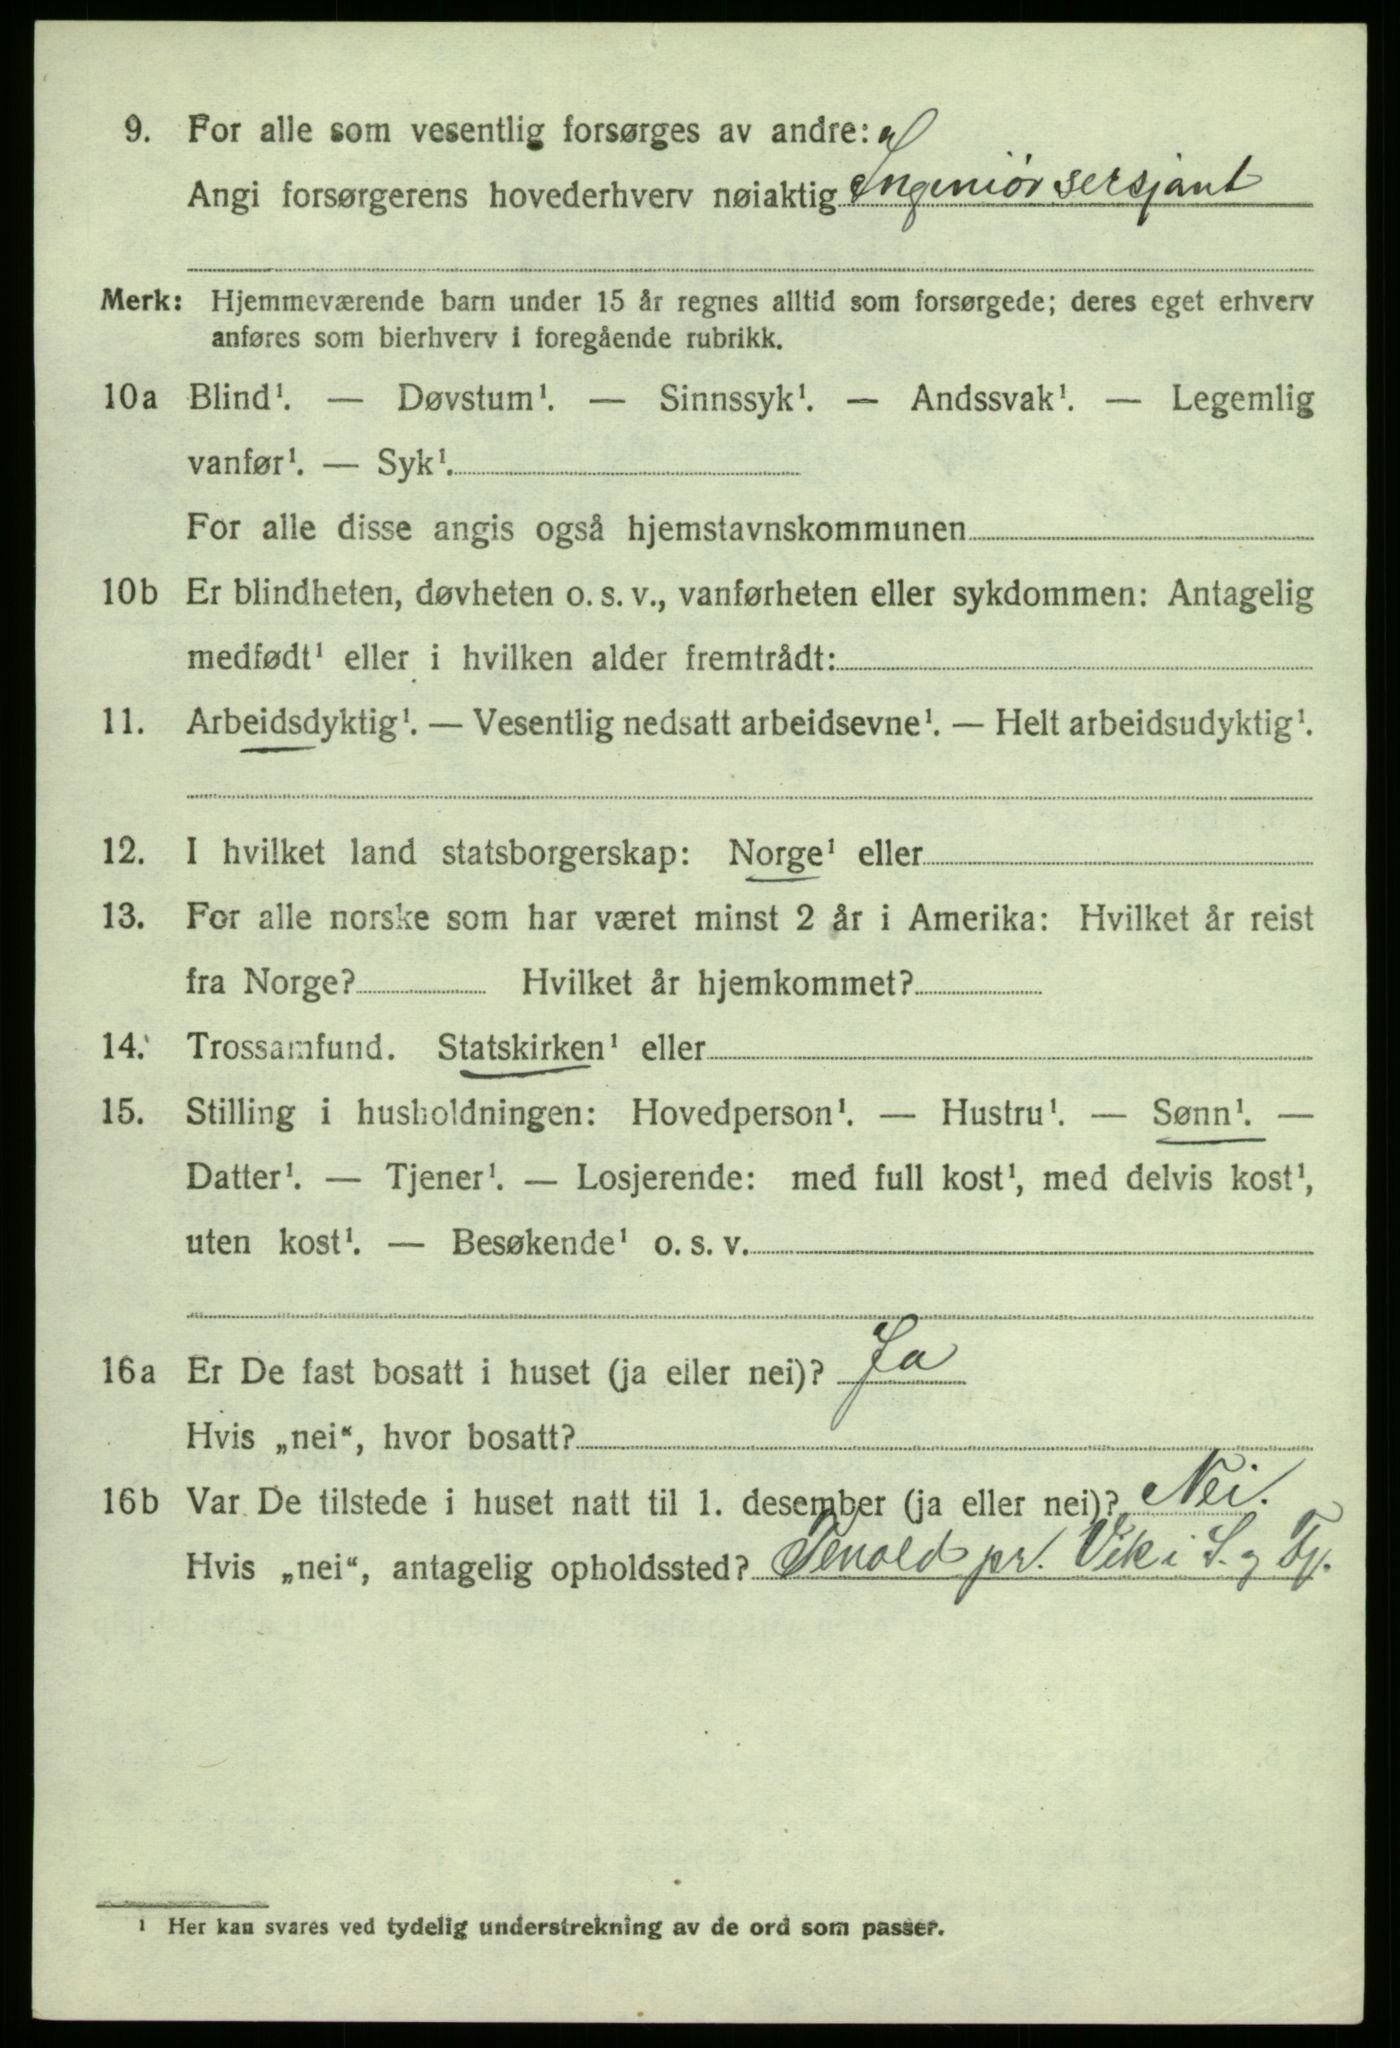 9. For alle som vesentlig forsørges av andre:
Angi forsørgerens hovederhverv nøiaktig Ingeniørsersjant
Merk: Hjemmeværende barn under 15 år regnes alltid som forsørgede; deres eget erhverv
anføres som bierhverv i foregående rubrikk.
10a Blind¹. — Døvstum¹. — Sinnssyk¹. — Andssvak¹. — Legemlig
vanfør¹. — Syk¹.
For alle disse angis også hjemstavnskommunen
10b Er blindheten, døvheten o. s. v., vanførheten eller sykdommen: Antagelig
medfødt¹ eller i hvilken alder fremtrådt:
11. Arbeidsdyktig¹. — Vesentlig nedsatt arbeidsevne¹. — Helt arbeidsudyktig¹.
12. I hvilket land statsborgerskap: Norge¹ eller
13. For alle norske som har været minst 2 år i Amerika: Hvilket år reist
fra Norge? Hvilket år hjemkommet?
14. Trossamfund. Statskirken¹ eller
15. Stilling i husholdningen: Hovedperson¹. — Hustru¹. — Sønn¹. —
Datter¹. — Tjener¹. — Losjerende: med full kost¹, med delvis kost¹,
uten kost¹. — Besøkende¹ o. s. v.
16a Er De fast bosatt i huset (ja eller nei)? Ja
Hvis „nei“, hvor bosatt?
16b Var De tilstede i huset natt til 1. desember (ja eller nei)? Nei.
Hvis „nei“, antagelig opholdssted? Tenold pr. Vik i S. og Fj.
¹ Her kan svares ved tydelig understrekning av de ord som passer.